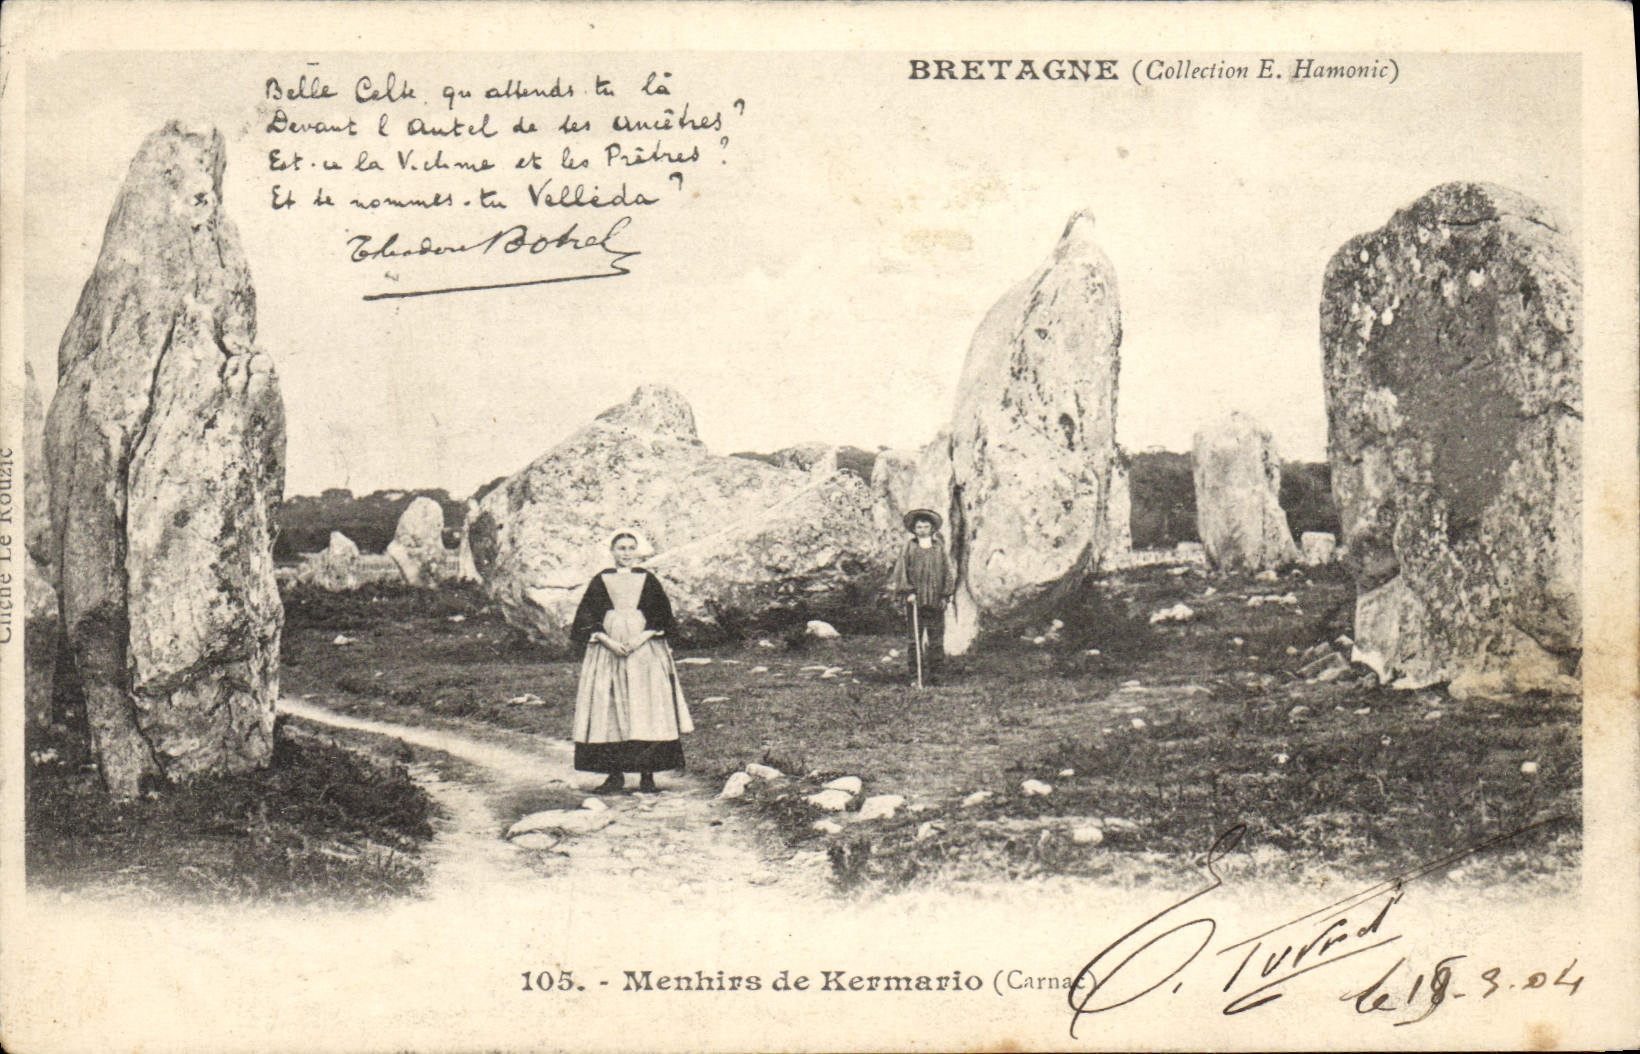 BRETAGNE (Collection E. Hamonic)
Belle Celte, qu attends-tu là
Devant l'Autel de tes ancêtres ?
Est-ce la Victime et les Prêtres ?
Et te nommes-tu Velléda ?
Theodore Botrel
Cliché Le Rouzic
105. - Menhirs de Kermario (Carnac)
le 18-9-04